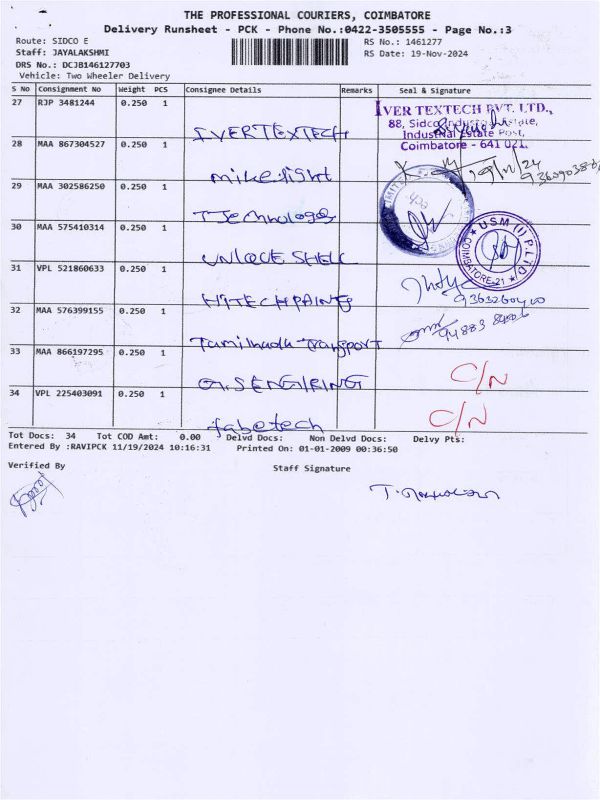 THE PROFESSIONAL COURIERS, COIMBATORE
Delivery Runsheet - PCK - Phone No.:0422-3505555 - Page No.:3
Route: SIDCO E RS No.: 1461277
Staff: JAYALAKSHMI RS Date: 19-Nov-2024
DRS No.: DCJB146127703
Vehicle: Two Wheeler Delivery
S No Consignment No Weight PCS Consignee Details Remarks Seal & Signature
27 RJP 3481244 0.250 1 IVERTEXTECH
IVER TEXTECH PVT. LTD.,
88, Sidco Industrial Estate,
Industrial Estate Post,
Coimbatore - 641 021.
28 MAA 867304527 0.250 1 mikelight
29 MAA 302586250 0.250 1 TJechnologes
30 MAA 575410314 0.250 1 UNIQUE SHELL
USM (I) P. LTD
COIMBATORE-21
31 VPL 521860633 0.250 1 HITECHPAINTS
32 MAA 576399155 0.250 1 Tamilnadu-Transport
33 MAA 866197295 0.250 1 G.SENGIRING C/N
34 VPL 225403091 0.250 1 fabetech C/N
Tot Docs: 34 Tot COD Amt: 0.00 Delvd Docs: Non Delvd Docs: Delvy Pts:
Entered By :RAVIPCK 11/19/2024 10:16:31 Printed On: 01-01-2009 00:36:50
Verified By Staff Signature